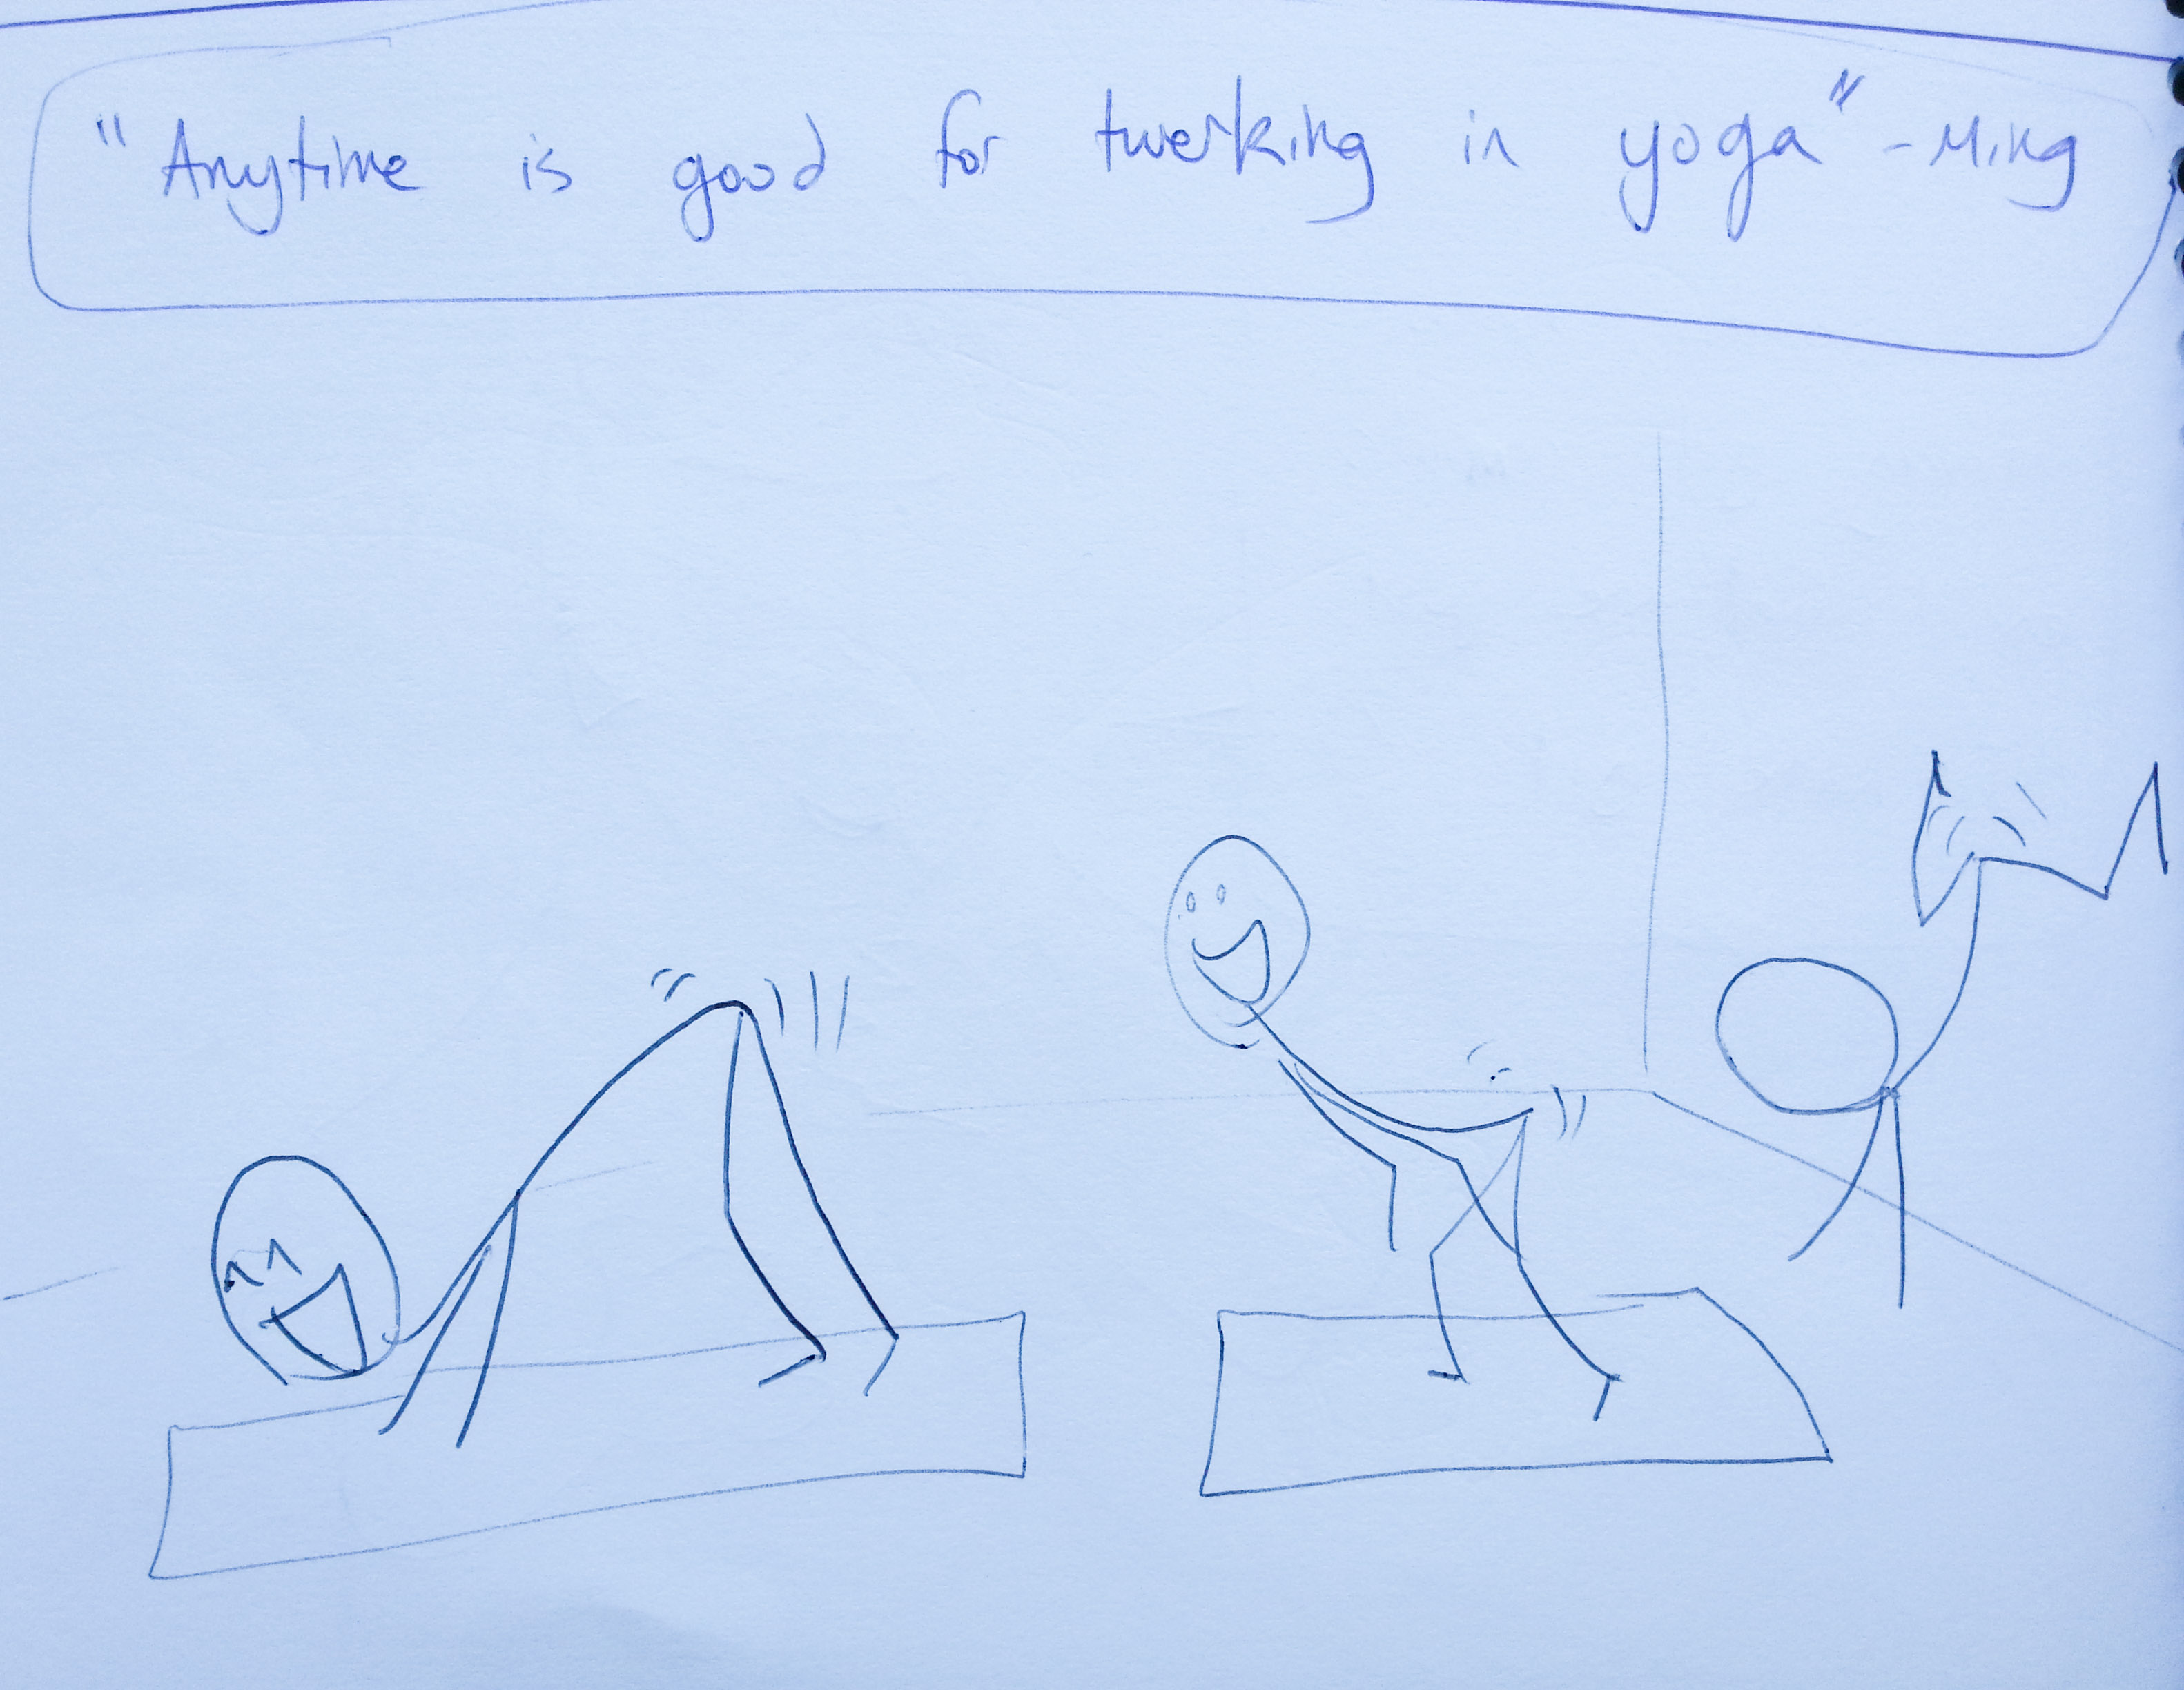 "Anytime is good for twerking in yoga" - Ming